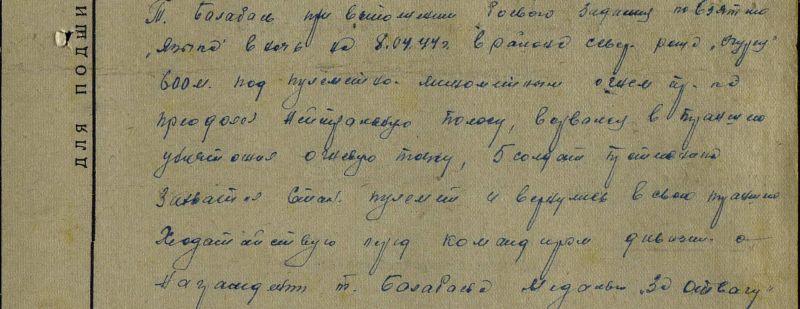 ДЛЯ ПОДШИ
Т. Балабась при выполнении боевого задания по взятию
„языка" в ночь на 8.04.44г. в районе север. роща „Огурец"
600 м. под пулеметно минометным огнем пр-ка
преодолел нейтральную полосу, ворвался в траншею
уничтожил огневую точку, 5 солдат противника
Захватил Стан. пулемет и вернулись в свою траншею
Ходатайствую перед командиром дивизии о
Награждении т. Балабась Медалью „За Отвагу"